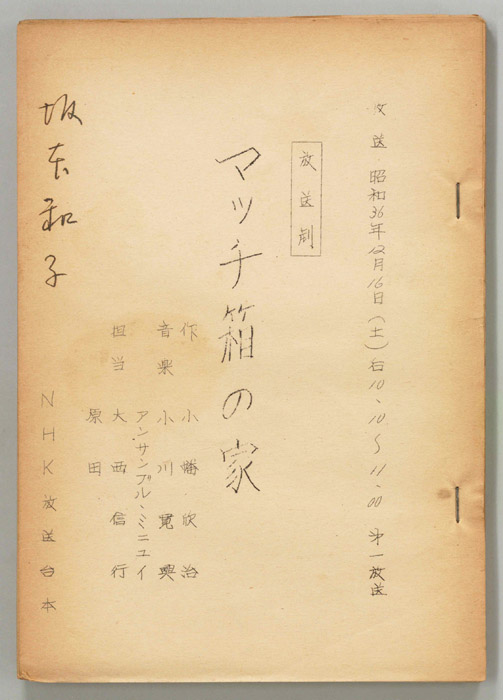 放送 昭和36年12月16日(土)后10、10〜11、00 第一放送
放送劇
マッチ箱の家
作 小幡欣治
音楽 小川寛興
アンサンブル・ミニュイ
担当 大西信行
原田
坂本和子
NHK放送台本